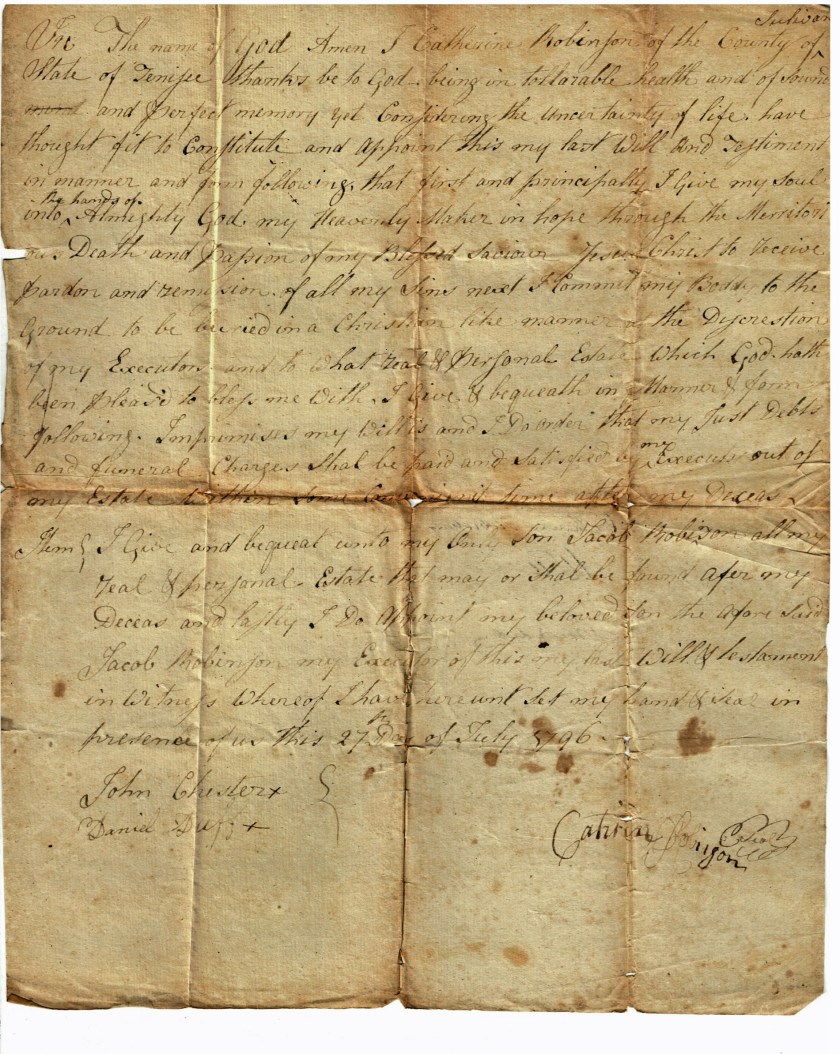 In The name of God Amen I Catherine Robinson of the County of Sulivan
State of Tenisee thanks be to God being in tollarable health and of sound
mind and perfect memory yet Considering the uncertainty of life have
thought fit to Constitute and appoint this my last Will and Testiment
in manner and form following, that first and principally I Give my Soul
into the hands of Almighty God my Heavenly Maker in hope through the Merritori
ous Death and Passion of my Blessed Saviour Jesus Christ to receive
Pardon and remission of all my Sins next I Commit my Body to the
Ground to be buried in a Christian like manner the Descrestion
of my Executor and to What real & personal Estate which God hath
been pleas'd to bless me With. I Give & bequeath in Manner & form
following. Imprimises my Will is and I Do order that my Just Debts
and funeral Charges Shal be paid and Satisfied by my out of
my Estate Within some time after my Deceas
Item I Give and bequeat unto my Only Son Jacob Robison all my
real & personal Estate that may or Shal be found afer my
Deceas and lastly I Do appoint my beloved Son the afore said
Jacob Robinson my Executor of this my last Will & testament
in Witness Whereof I have here unt Set my hand & seal in
presence of us this 27th Day of July 1796
John Chester x
Daniel Duff x
Catirine Robinson